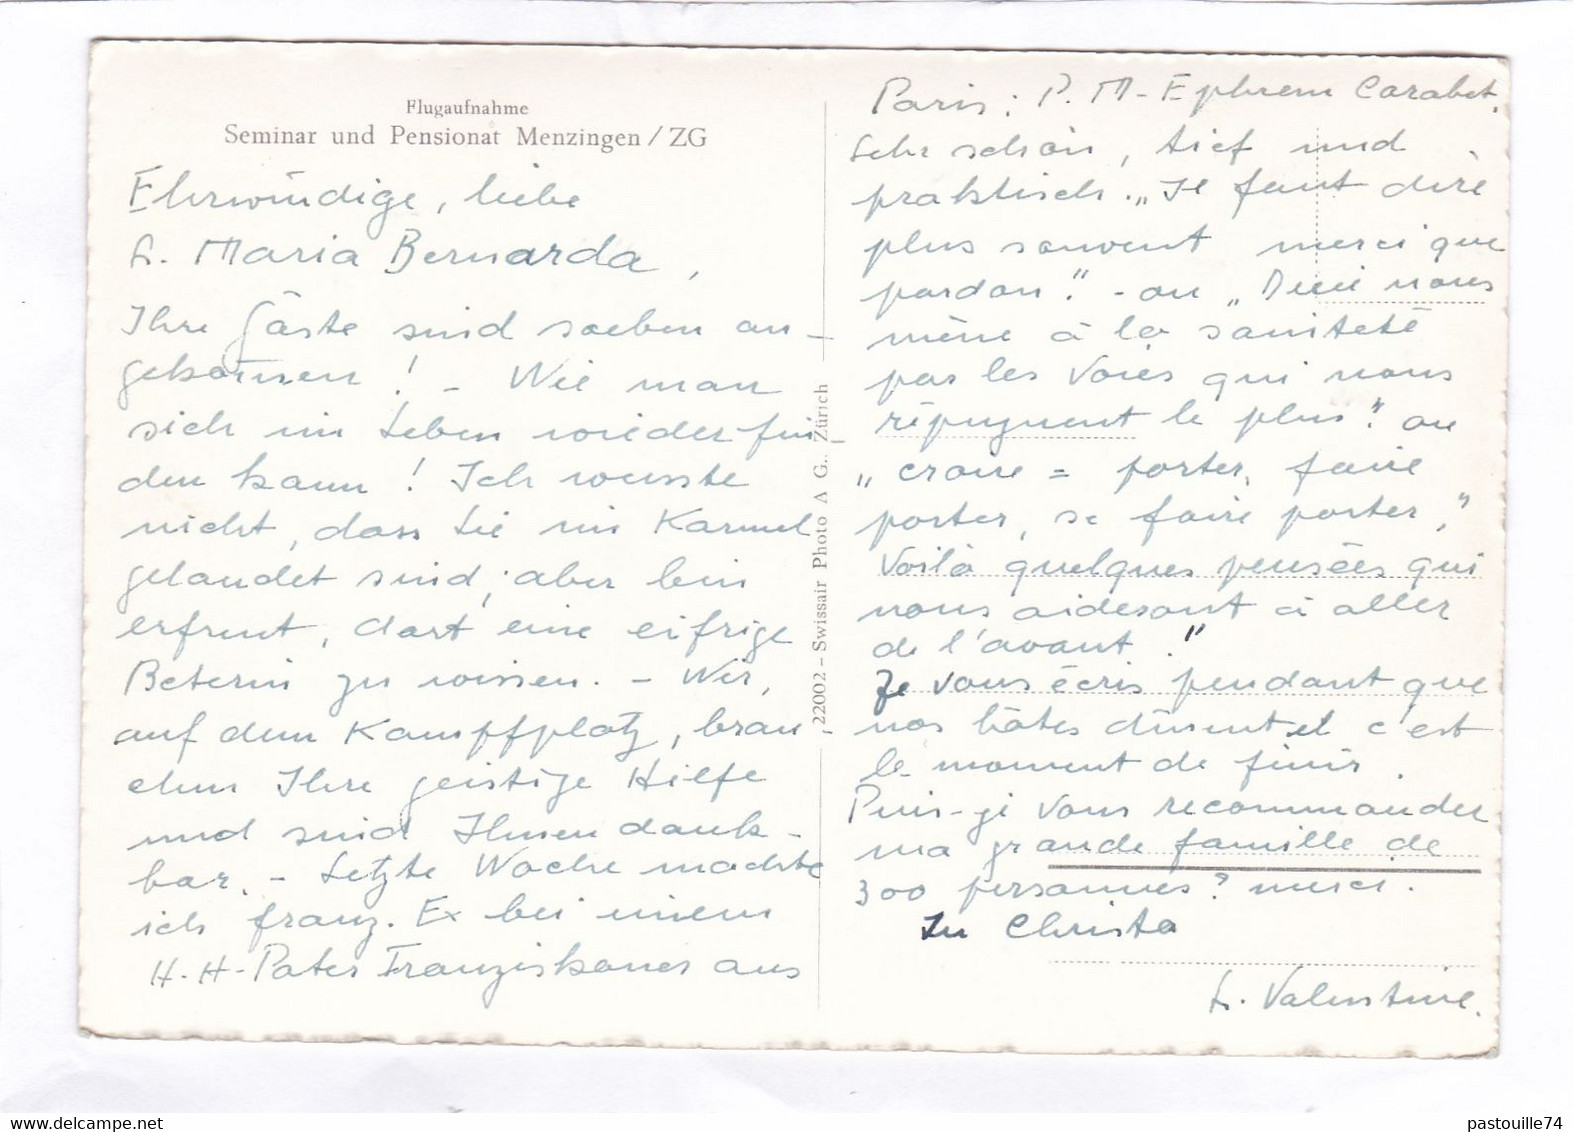 Flugaufnahme
Seminar und Pensionat Menzingen / ZG
Ehrwürdige, liebe
S. Maria Bernarda,
Ihre Gäste sind soeben an-
gekommen! - Wie man
sich im Leben wiederfin-
den kann! Ich wusste
nicht, dass Sie im Karmel
gelandet sind, aber bin
erfreut, dort eine eifrige
Beterin zu wissen. - Wir,
auf dem Kampfplatz, brau-
chen Ihre geistige Hilfe
und sind Ihnen dank-
bar. - Letzte Woche machte
ich franz. Ex bei einem
H. H. Pater Franziskaner aus
22002 - Swissair Photo A G., Zürich
Paris: P. M-Ephrem Carabet.
Sehr schön, tief und
praktisch. „Il faut dire
plus souvent merci que
pardon." - ou „Dieu nous
mène à la sainteté
par les voies qui nous
répugnent le plus". ou
„croire = porter, faire
porter, se faire porter,"
Voilà quelques pensées qui
nous aideront à aller
de l'avant!"
Je vous écris pendant que
nos hôtes dînent et c'est
le moment de finir.
Puis-je vous recommander
ma grande famille de
300 personnes? merci.
In Christo
S. Valentine.
pastouille74